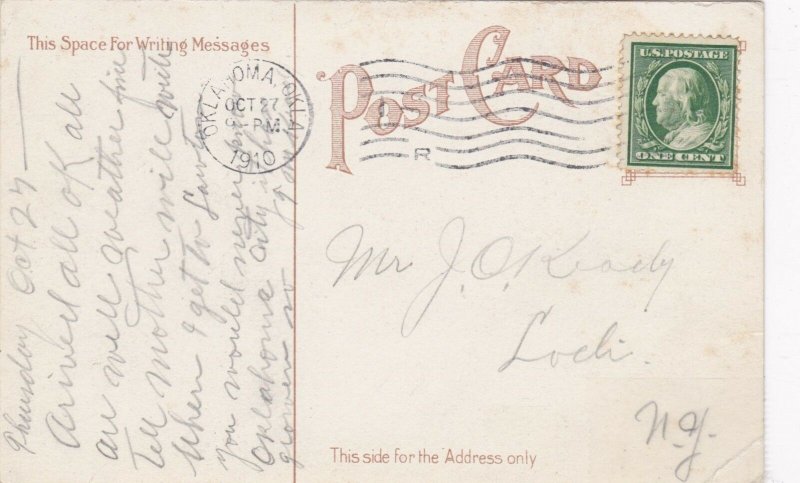 This Space For Writing Messages
POST CARD
OKLAHOMA, OKLA.
OCT 27
PM
1910
R
U.S. POSTAGE
ONE CENT
Thursday Oct 27 —
Arived all OK all
are well weather fine
Tell mother will write
when I get to
you would never
Oklahoma City
grown so
Mr J. O. Keady
Lodi.
N.Y.
This side for the Address only